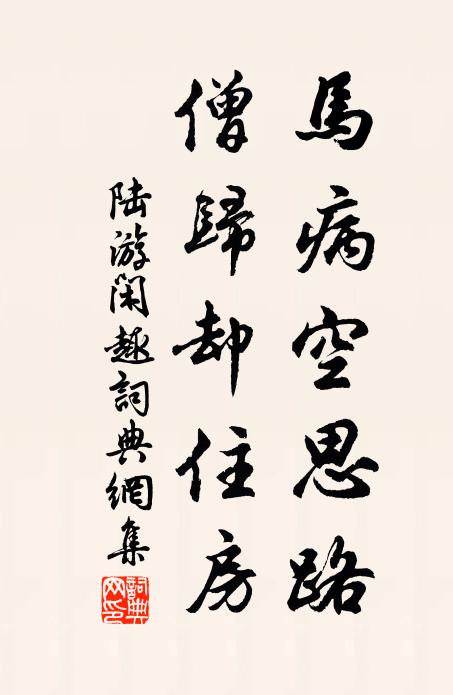 馬病空思路
僧歸却住房
陆游闲趣詞典網集
詞典网印